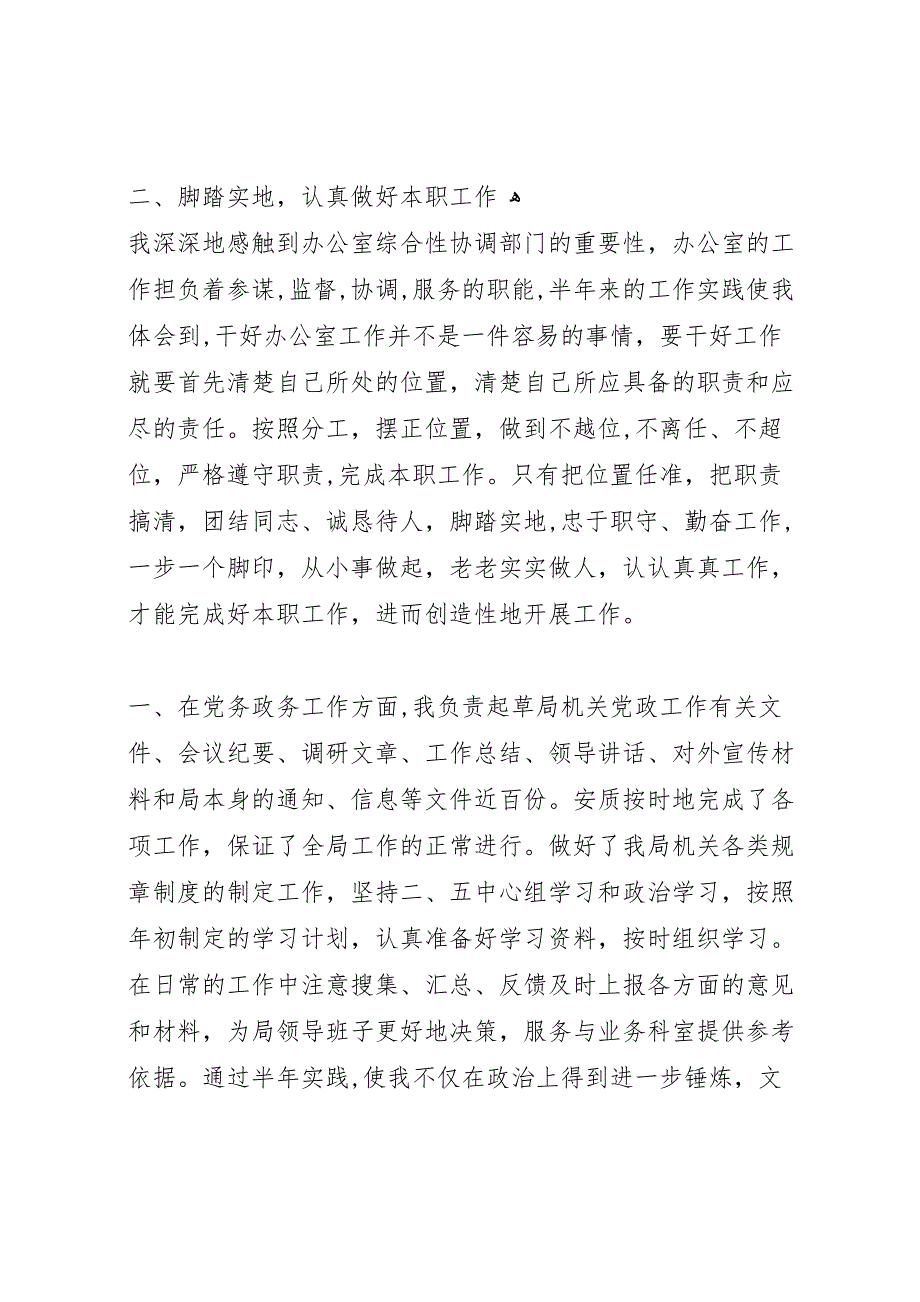 二、脚踏实地，认真做好本职工作 ﻫ
我深深地感触到办公室综合性协调部门的重要性，办公室的工
作担负着参谋,监督,协调,服务的职能,半年来的工作实践使我
体会到,干好办公室工作并不是一件容易的事情，要干好工作
就要首先清楚自己所处的位置，清楚自己所应具备的职责和应
尽的责任。按照分工，摆正位置，做到不越位,不离任、不超
位，严格遵守职责,完成本职工作。只有把位置任准，把职责
搞清，团结同志、诚恳待人，脚踏实地,忠于职守、勤奋工作,
一步一个脚印，从小事做起，老老实实做人，认认真真工作，
才能完成好本职工作，进而创造性地开展工作。
一、在党务政务工作方面,我负责起草局机关党政工作有关文
件、会议纪要、调研文章、工作总结、领导讲话、对外宣传材
料和局本身的通知、信息等文件近百份。安质按时地完成了各
项工作，保证了全局工作的正常进行。做好了我局机关各类规
章制度的制定工作，坚持二、五中心组学习和政治学习，按照
年初制定的学习计划，认真准备好学习资料，按时组织学习。
在日常的工作中注意搜集、汇总、反馈及时上报各方面的意见
和材料，为局领导班子更好地决策，服务与业务科室提供参考
依据。通过半年实践,使我不仅在政治上得到进一步锤炼，文